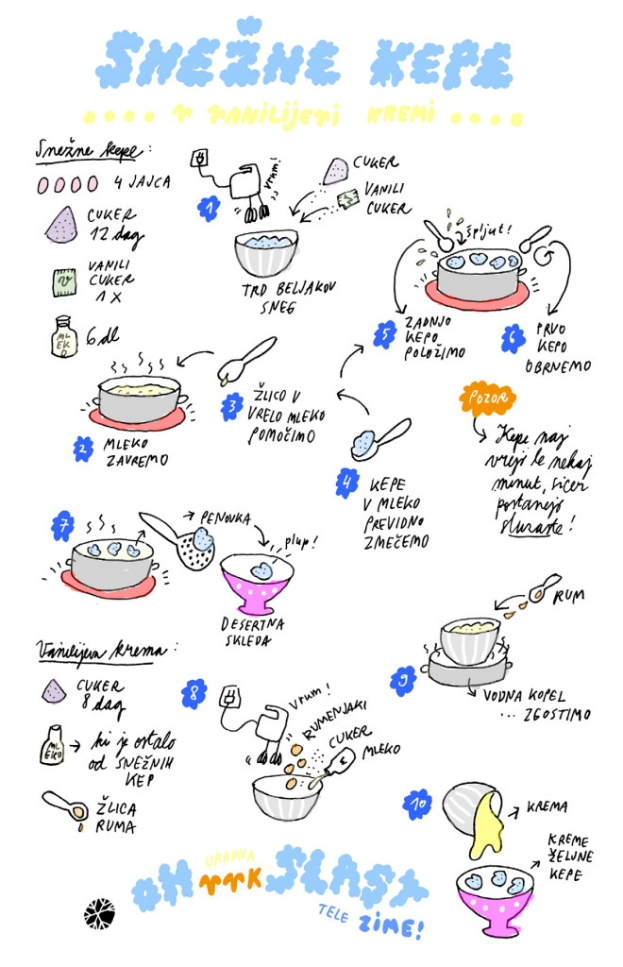 SNEŽNE KEPE
V VANILIJEVI KREMI
Snežne kepe:
4 JAJCA
CUKER
12 dag
V
VANILI
CUKER
1 X
MLEKO
6 dl
1
vrum!
CUKER
VANILI
CUKER
TRD BELJAKOV
SNEG
2
MLEKO
ZAVREMO
3
ŽLICO V
VRELO MLEKO
POMOČIMO
4
KEPE
V MLEKO
PREVIDNO
ZMEČEMO
špljut!
5
ZADNJO
KEPO
POLOŽIMO
6
PRVO
KEPO
OBRNEMO
POZOR
Kepe naj
vrejo le nekaj
minut, sicer
postanejo
sluzaste!
7
PENOVKA
plup!
DESERTNA
SKLEDA
Vanilijeva krema:
CUKER
8 dag
MLEKO
ki je ostalo
od SNEŽNIH
KEP
ŽLICA
RUMA
8
vrum!
RUMENJAKI
CUKER
MLEKO
9
RUM
VODNA KOPEL
... ZGOSTIMO
10
KREMA
KREME
ŽELJNE
KEPE
OH
SLAST
TELE ZIME!